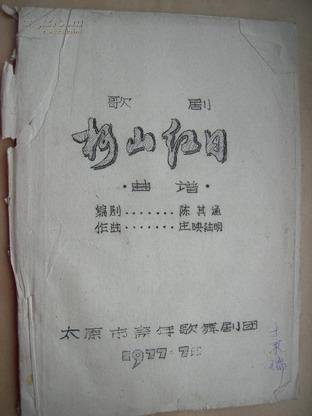 歌剧
柯山红日
·曲谱·
编剧·······陈其通
作曲·······庄映 陆明
太原市青年歌舞剧团
1977·7